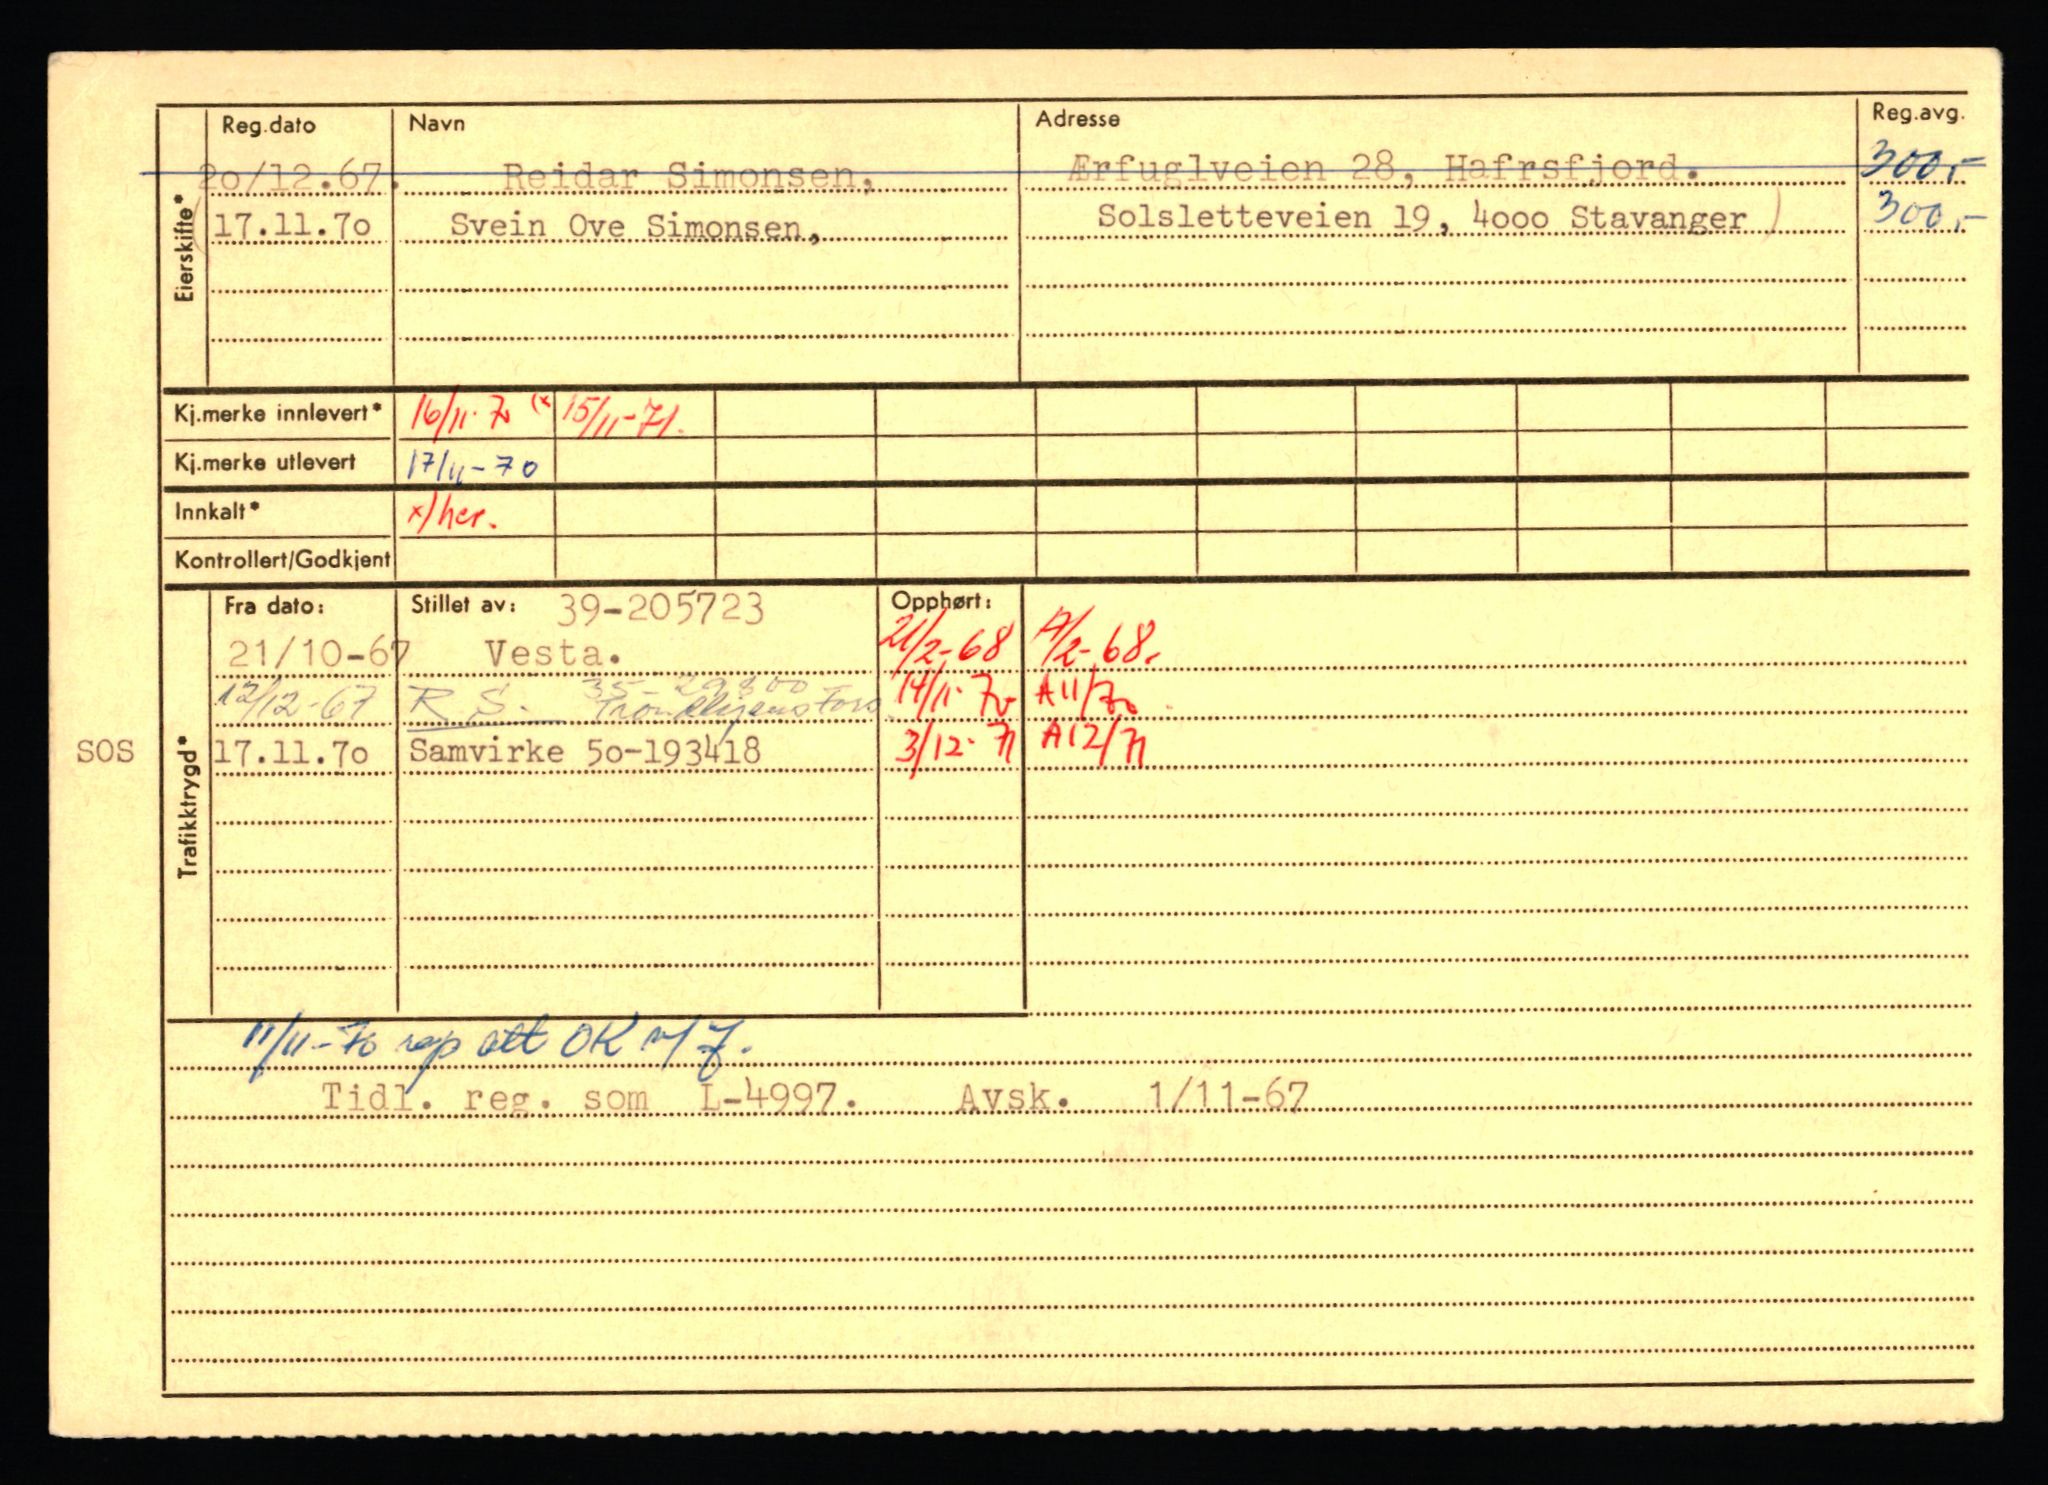 Reg.dato Navn Adresse Reg.avg.
20/12.67. Reidar Simonsen, Ærfuglveien 28, Hafrsfjord. 300,-
17.11.7o Svein Ove Simonsen, Solsletteveien 19, 4ooo Stavanger 300,-
Eierskifte*
Kj.merke innlevert* 16/11-70 (x 15/11-71.
Kj.merke utlevert 17/11-70
Innkalt* x/her.
Kontrollert/Godkjent
Fra dato: Stillet av: 39-205723 Opphørt:
21/10-67 Vesta. 21/2-68 A/2-68.
12/12-67 R.S. 35-29300 14/11-70 A11/70
SOS 17.11.7o Samvirke 5o-193418 3/12-71 A12/71
Trafikktrygd*
11/11-70 rep att OK
Tidl. reg. som L-4997. Avsk. 1/11-67